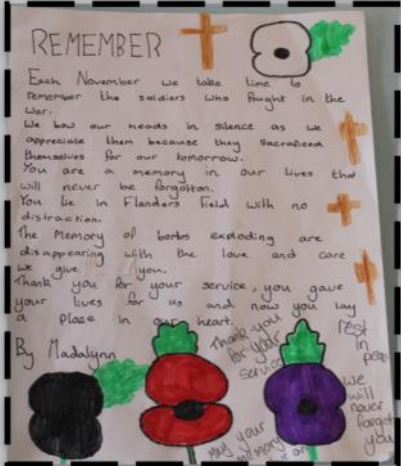 REMEMBER
Each November we take time to
remember the soldiers who fought in the
war.
We bow our heads in silence as we
appreciate them because they sacraficed
themselves for our tomorrow.
You are a memory in our lives that
will never be forgotten.
You lie in Flanders Field with no
distraction.
The Memory of bombs exploding are
disappearing with the love and care
we give you.
Thank you for your service, you gave
your lives for us and now you lay
a place in our heart.
By Madalynn
Thank you
for your
service
rest
in
peace
We
will
never
forget
you
May your
memory